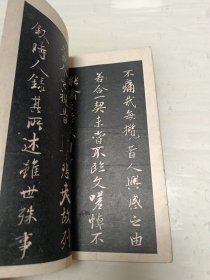 不痛哉每攬昔人興感之由
若合一契未嘗不臨文嗟悼不
視昔悲夫故列
敘時人錄其所述雖世殊事